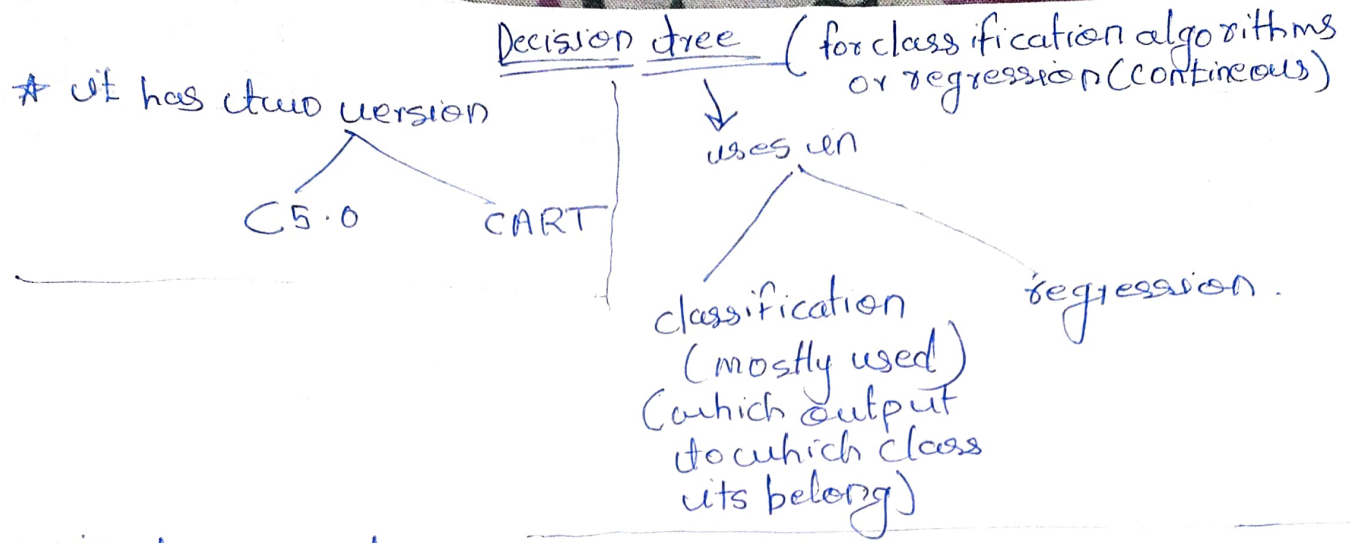 Decision tree (for classification algorithms
or regression (contineous)
* it has two version
C5.0
CART
uses in
classification
(mostly used)
(which output
to which class
its belong)
regression.